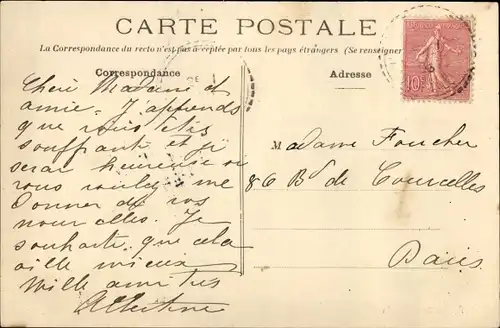 CARTE POSTALE
La Correspondance du recto n'est pas acceptée par tous les pays étrangers (Se renseigner
Correspondance
Adresse
10
Chère Madame et
amie. J'apprends
que vous êtes
souffrante et je
serai heureuse si
vous voulez me
donner de vos
nouvelles. Je
souhaite que cela
aille mieux
Mille amitiés
Madame Foucher
86 Bd de Courcelles
Paris